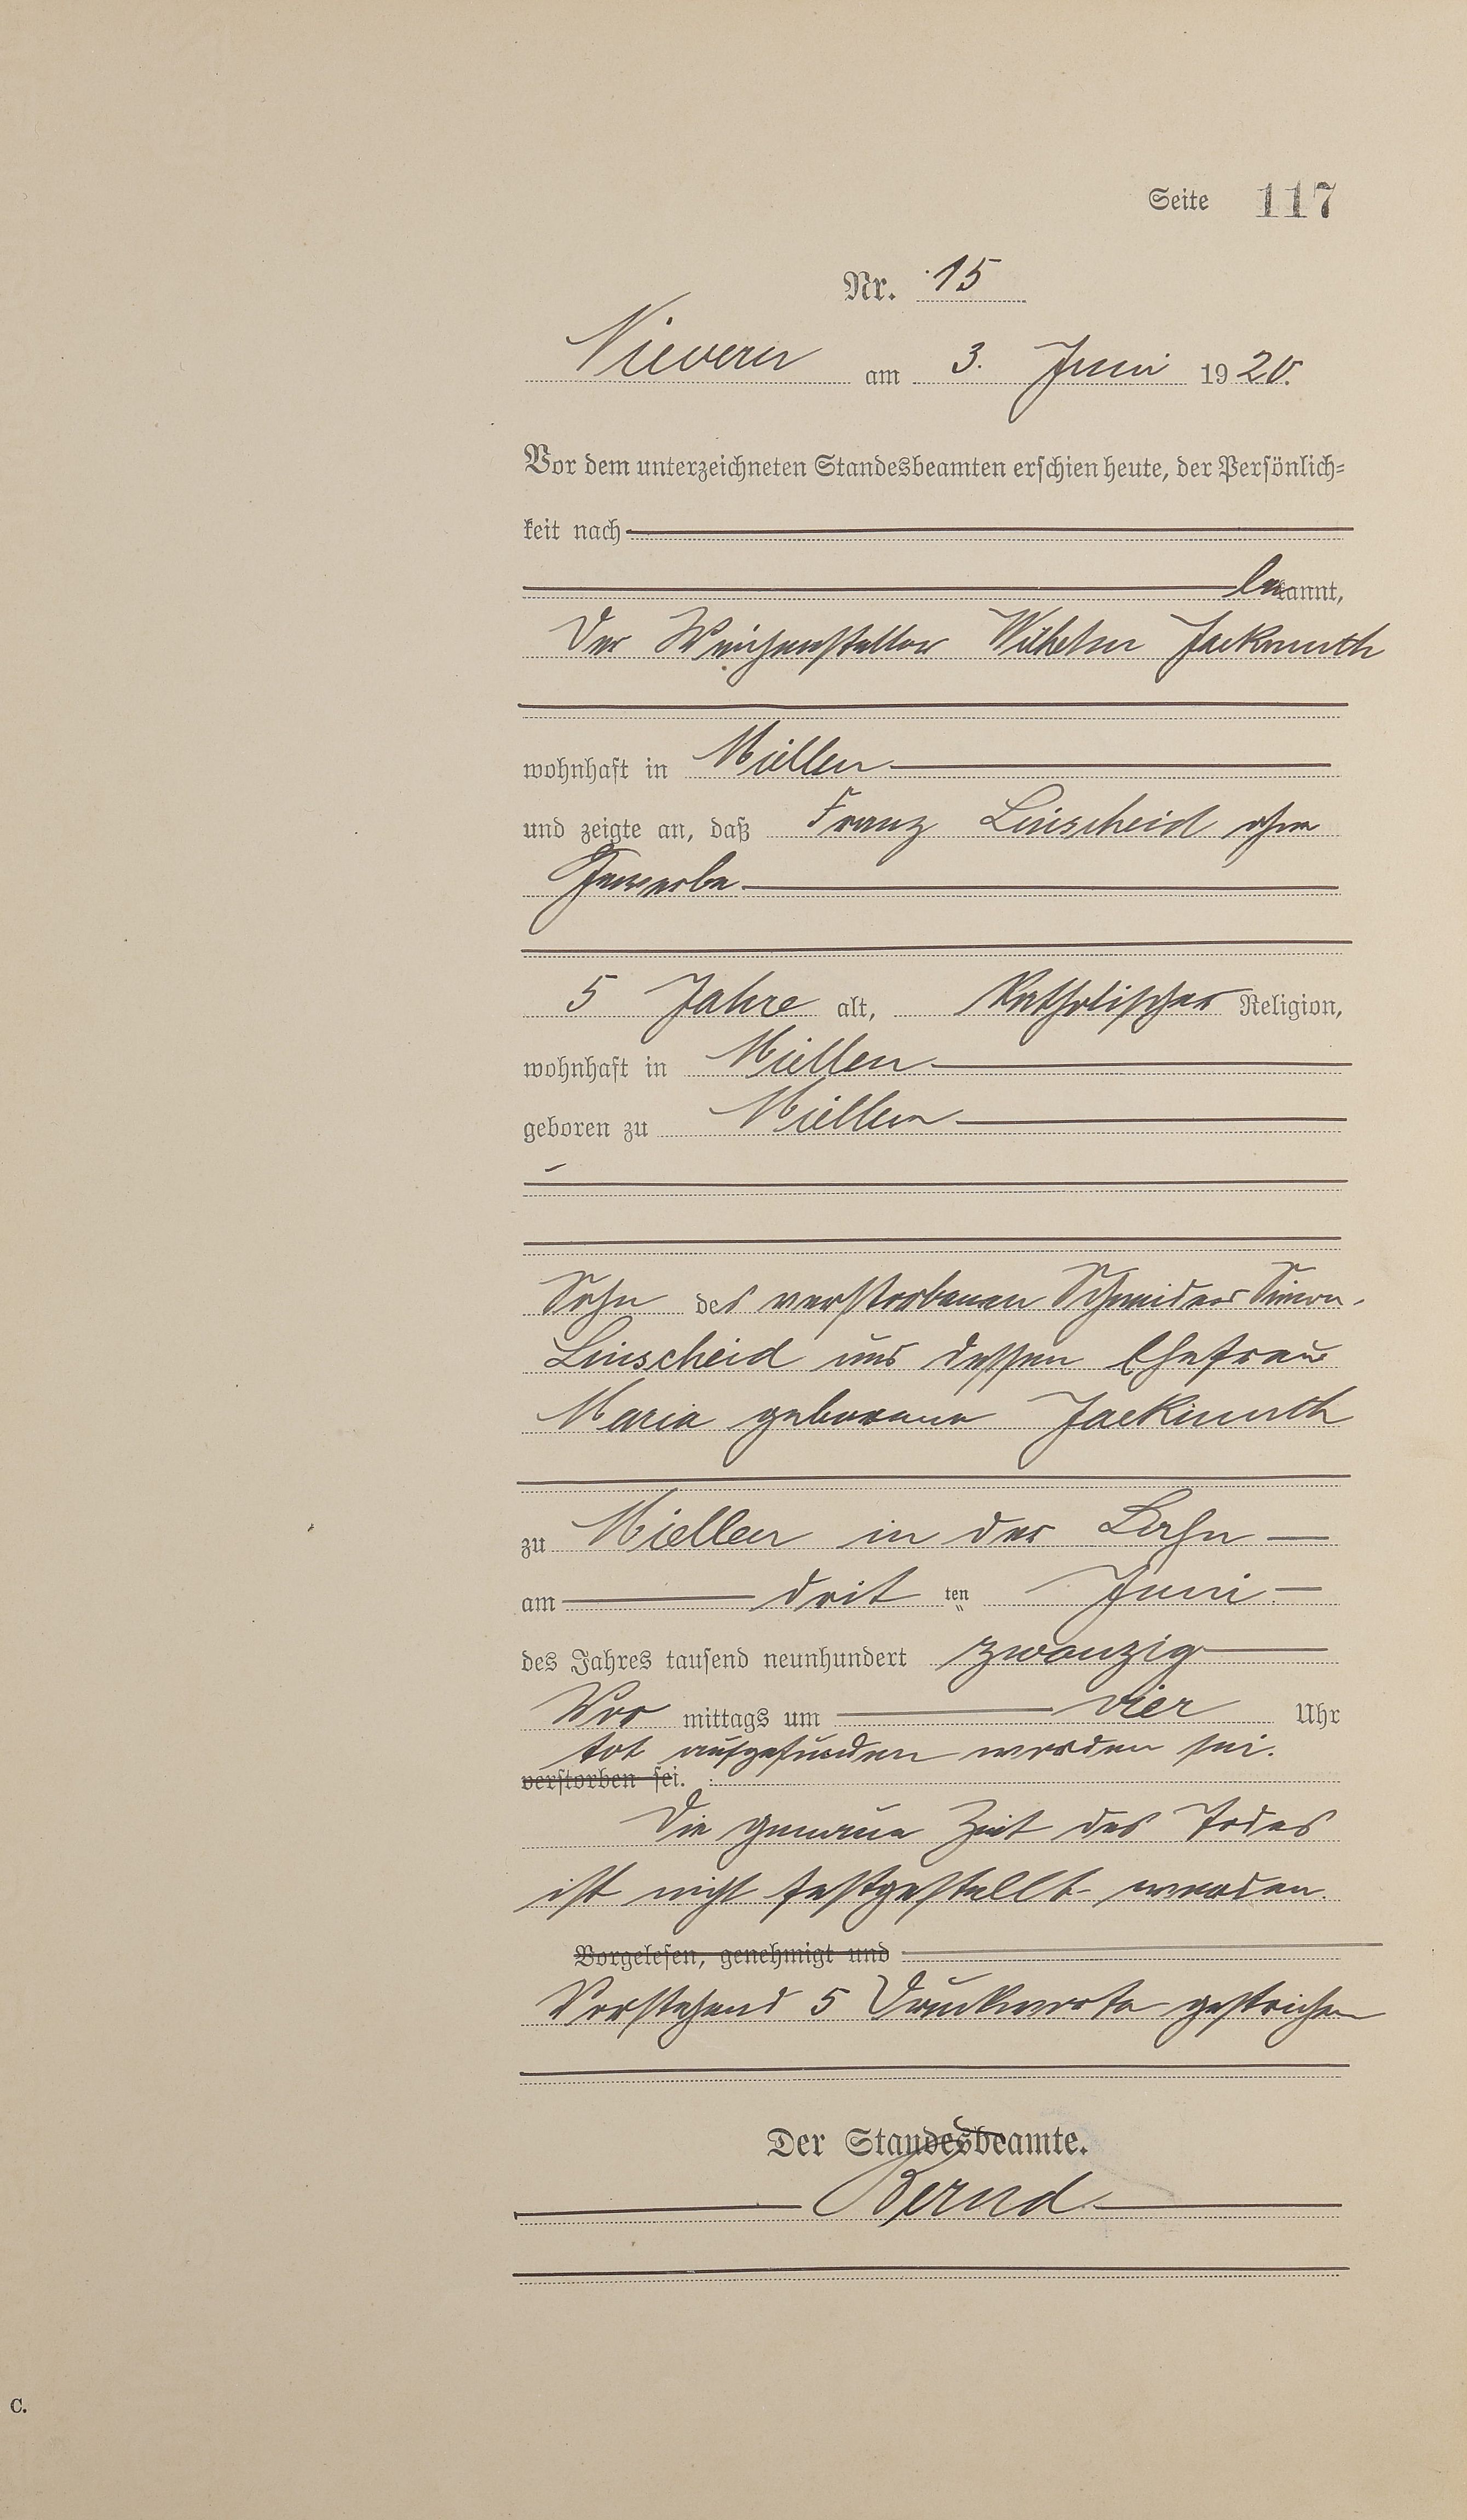 Seite 117
Nr. 15
Nievern am 3. Juni 1920.
Vor dem unterzeichneten Standesbeamten erschien heute, der Persönlich-
keit nach
bekannt,
Der Weichensteller Wilhelm Jackmuth
wohnhaft in Miellen
und zeigte an, daß Franz Linscheid ohne
Gewerbe
5 Jahre alt, Katholischer Religion,
wohnhaft in Miellen
geboren zu Miellen
Sohn des verstorbenen Schneiders Simon
Linscheid und dessen Ehefrau
Maria geborene Jackmuth
zu Miellen in der Lahn
am drit ten Juni
des Jahres tausend neunhundert zwanzig
Vor mittags um vier Uhr
tot aufgefunden worden sei.
verstorben sei.
Die genaue Zeit des Todes
ist nicht festgestellt worden.
Vorgelesen, genehmigt und
Vorstehend 5 Druckworte gestrichen
Der Standesbeamte.
Bernd
C.